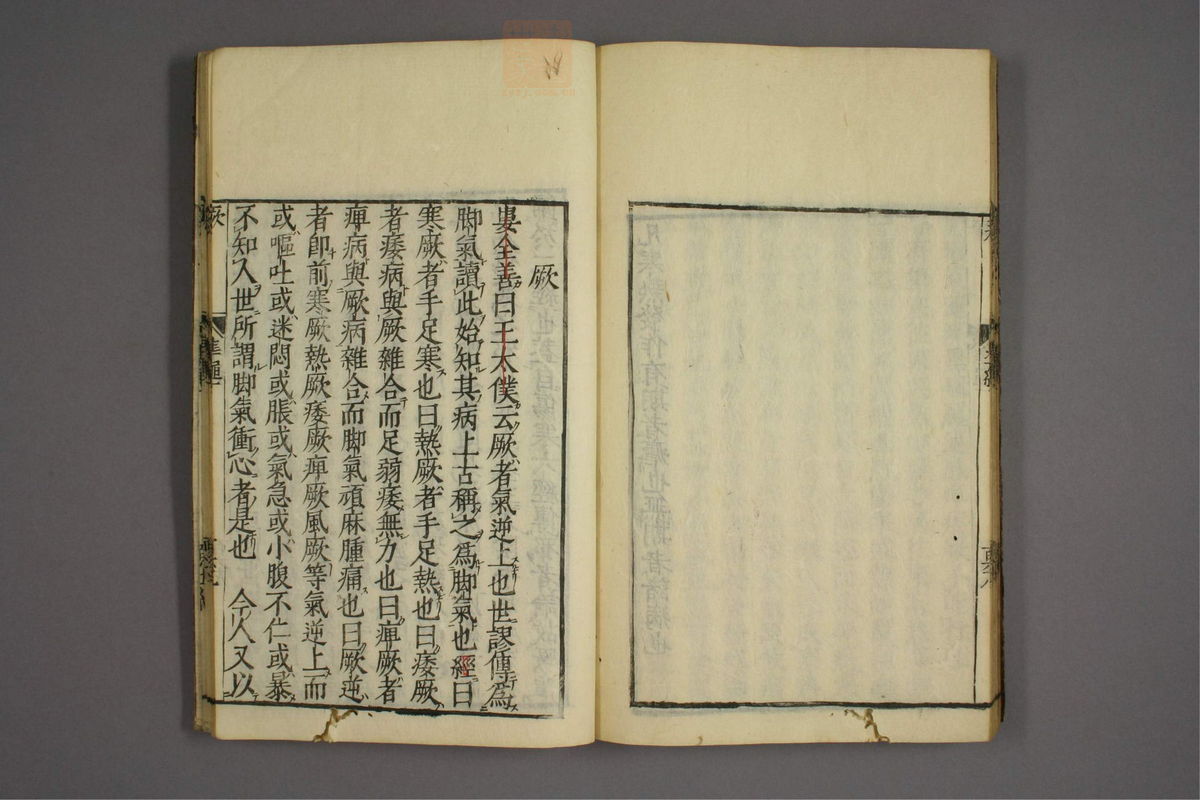 厥
婁全善曰王太僕云厥者氣逆上也世謬傳爲
脚氣讀此始知其病上古稱之爲脚氣也經曰
寒厥者手足寒也曰熱厥者手足熱也曰痿厥
者痿病與厥雜合而足弱痿無力也曰痺厥者
痺病與厥病雜合而脚氣頑麻腫痛也曰厥逆
者即前寒厥熱厥痿厥痺厥風厥等氣逆上而
或嘔吐或迷悶或脹或氣急或小腹不仁或暴
不知人世所謂脚氣衝心者是也 今人又以
厥
準繩